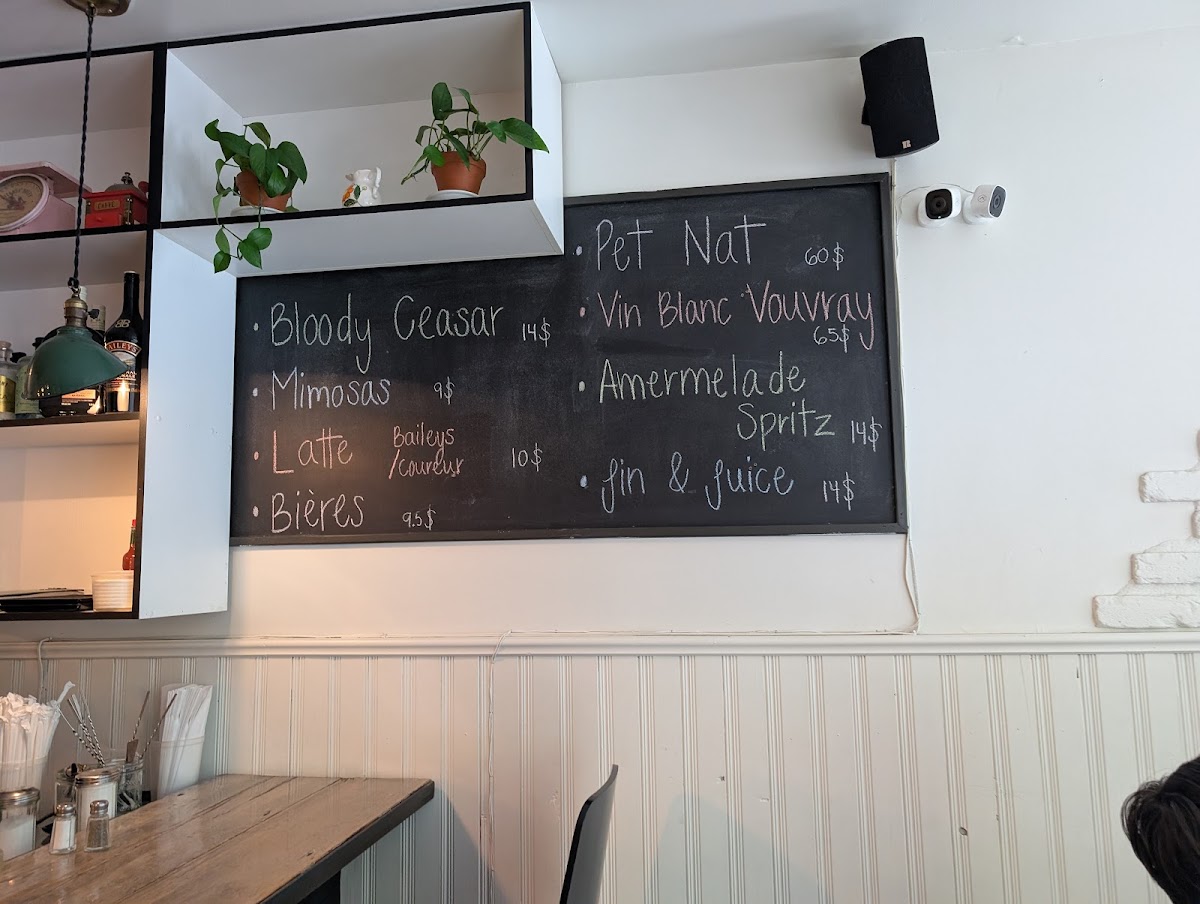 · Bloody Ceasar 14$
· Mimosas 9$
· Latte Baileys
/coureur 10$
· Bières 9.5$
· Pet Nat 60$
· Vin Blanc Vouvray
65$
· Amermelade
Spritz 14$
· Gin & Juice 14$
BAILEYS